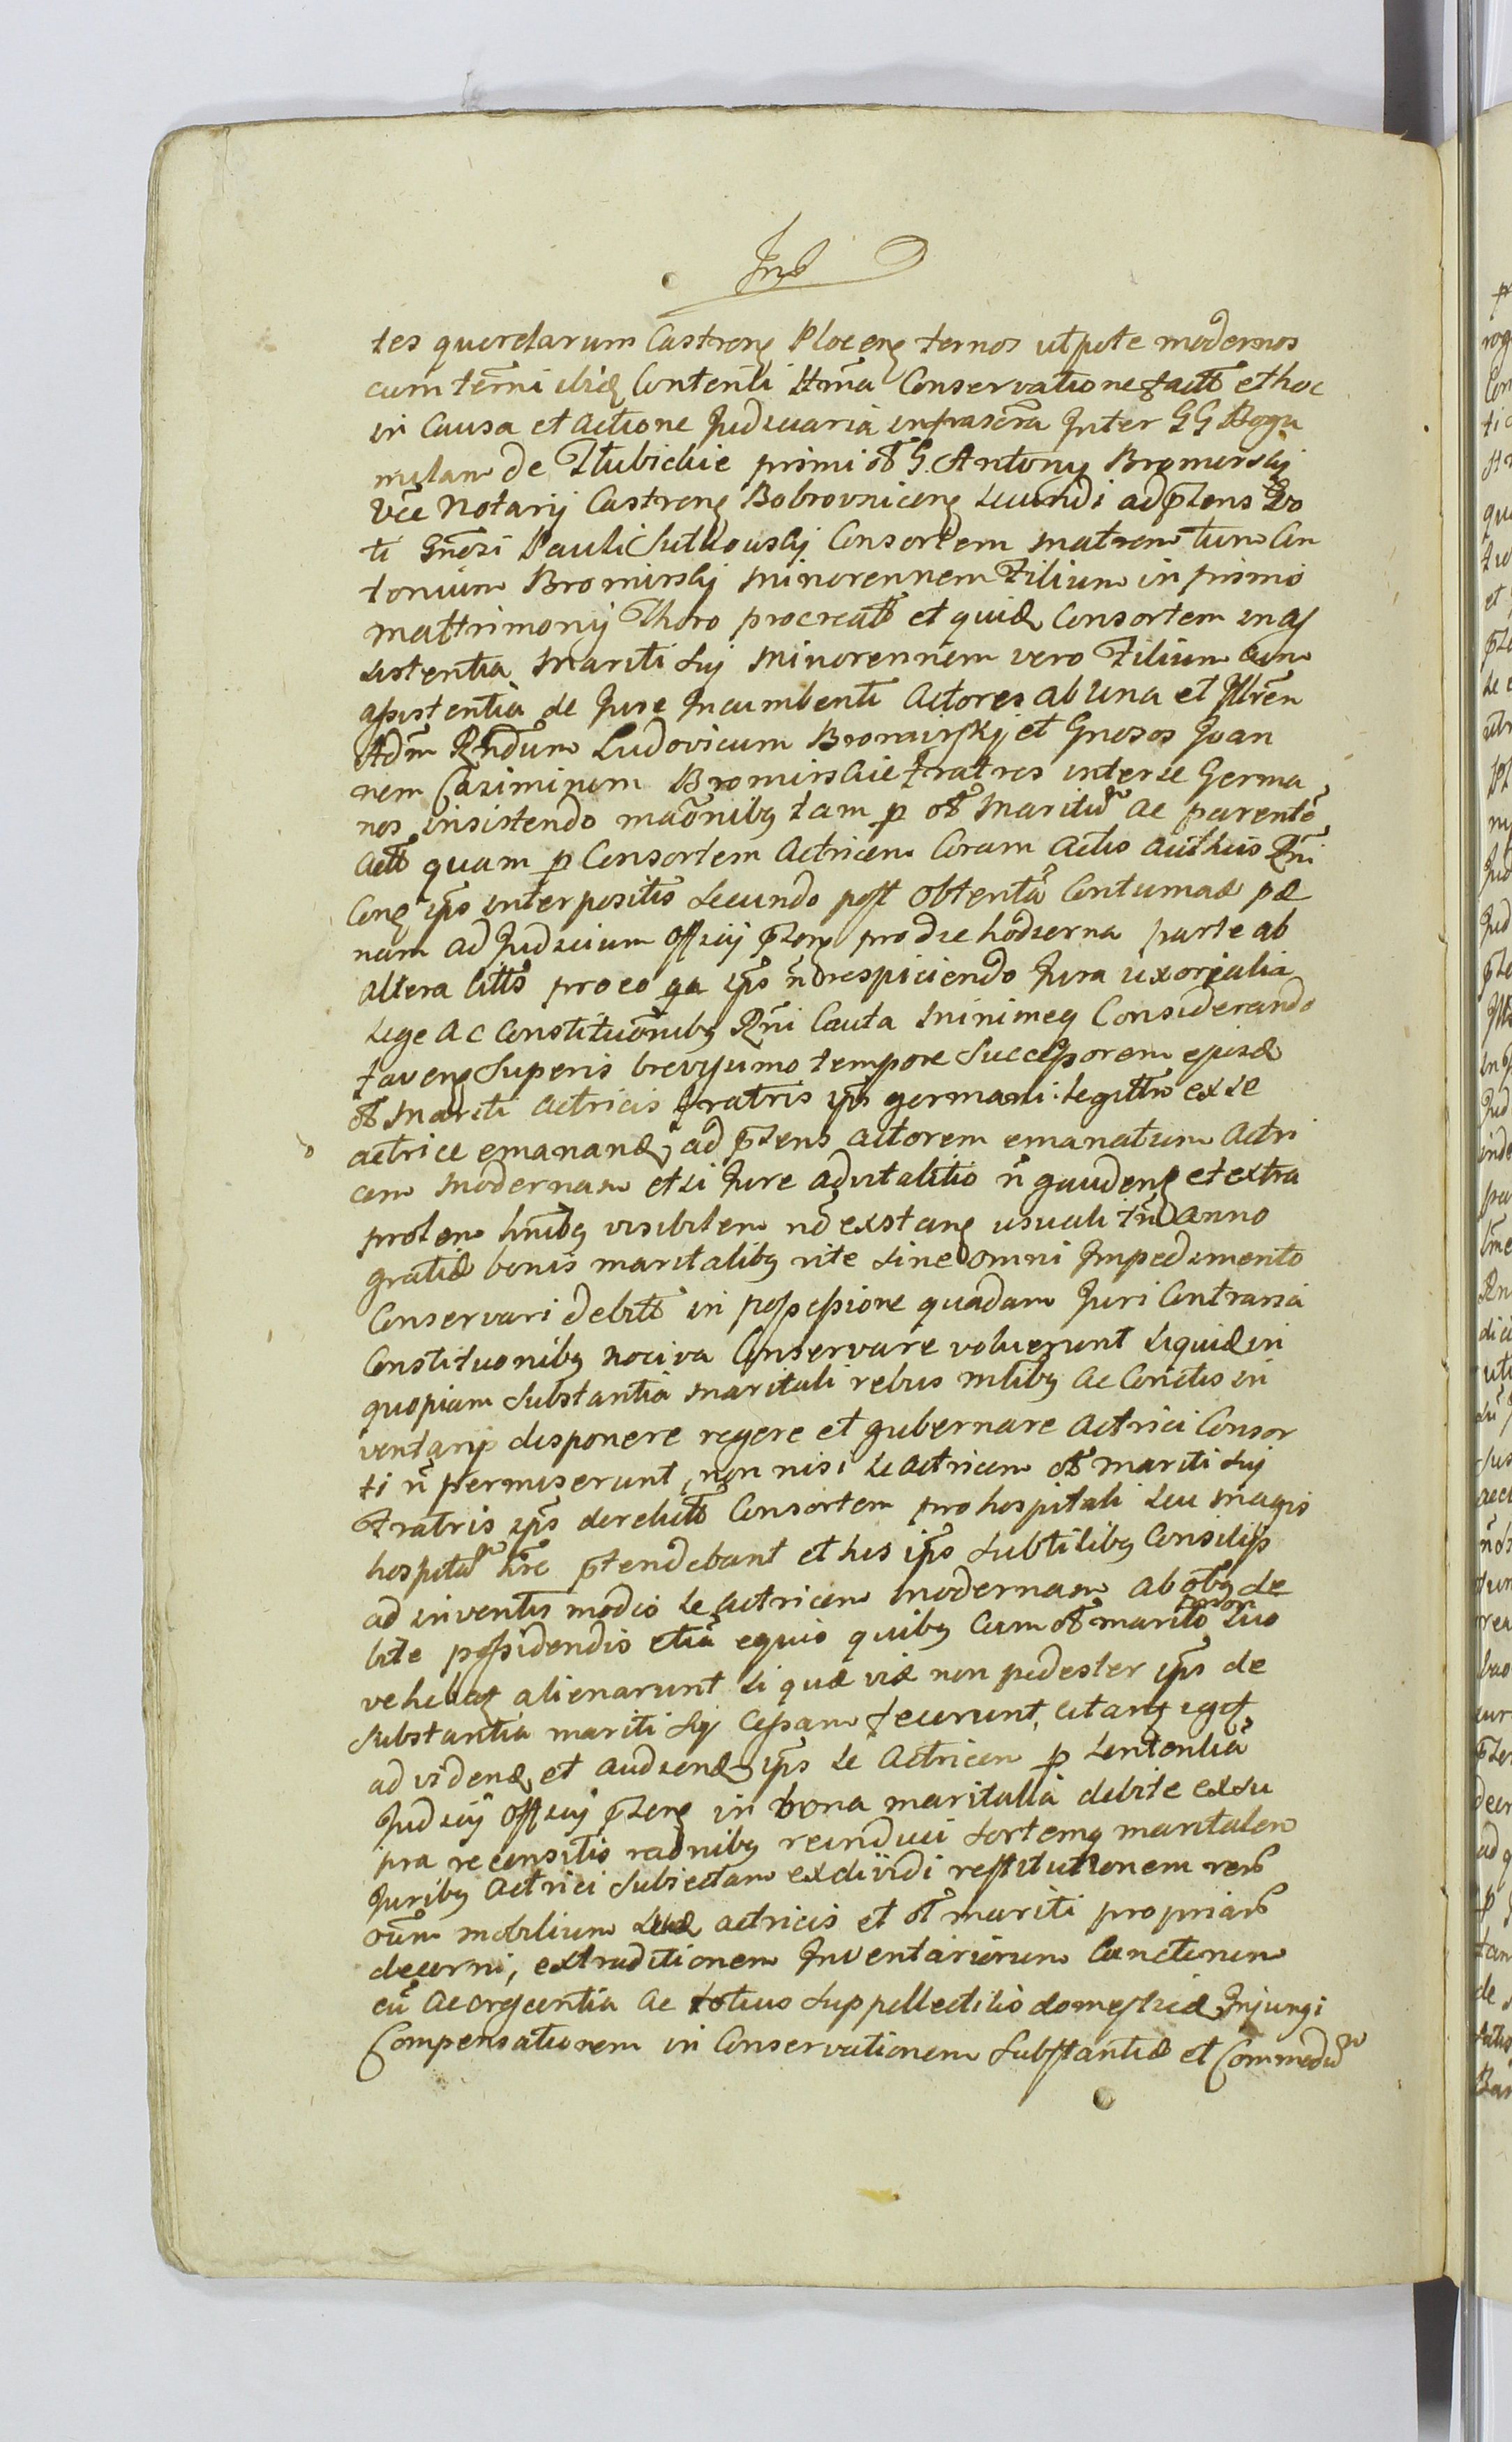 tes querelarum Castreng Ploceng ternos utpote modernos
cum termi ibid Contenti Itma Conservatione fact et hoc
in Causa et actione Judiciaria infrascra Inter GG Bogu
milam de Hlubickie primi ot G. Antony Bromirskij
Vce Notarij Castreng Bobrovniceng secundi ad pZens Vo
ti Gnosi Pauli Sutkouskij Consortem matrem tum An
tonium Bromirskij minorennem Filium in primo
mattrimonij Thoro procreat et quid Consortem in as
sistentia Mariti sui minorennem vero Filium cum
assistentia de Jure Incumbenti Actores ab una et Illrem
Adm Rndum Ludovicum Bromirskij et Gnosos Joan
nem Casimirum Bromirskie Fratres inter se Germa
nos insistendo maonibg tam p ot Maritu ac parente
actt quam p Consortem Actricem Coram Actis authis Rni
Cong ips interpositis secundo post obtenta Contumac pæ
nam ad Judicium Officij pZeng pro die hodierna parte ab
altera littis pro eo qa ips n respiciendo Jura uxorialia
Lege ac Constituonibg Rni Cauta minimeq Considerando
faveng Superis brevissimo tempore Successorem ejusd
ot Mariti actricis Fratris ips germani Legittm ex se
actrice emanand, ad pZens actorem emanatum Actri
cem modernam etsi Jure advitalitio n gaudeng et extra
prolem hnibg visibilem no exstang usuali tnd anno
gratiæ bonis maritalibg rite sine omni Impedimento
Conservari debitt in possessione quadam Juri Contraria
Constituonibg nociva Conservare voluerunt Liquid in
quopiam substantia maritali rebus mlibg ac Cunctis in
ventarijs disponere regere et gubernare actrici Consor
ti n permiserunt, non nisi se actricem ot mariti sui
Fratris ips derelitt Consortem pro hospitali seu magis
hospita hre ptendebant et his ips subtilibg Consilijs
ad inventis modis se actricem modernam ab otbg de
bite possidendis etia equis quibg Cum ot marito suo
alienarunt si quæ viæ non pedester ips de
substantia mariti sui Cessam fecerunt, citantg
ad vidend et audiend ips se Actricem p sententia
Judicij Officij pZeng in bona maritalia debite ex su
pra recensitis raonibg reinduci sortemq maritalem
Juribg Actrici subiectam exdividi restitutionem rer
oum mobilium suæ actricis et ot mariti propriar
decerni, extraditionem Inventariorum Cunctorum
cu accrescentia ac totius suppellectilis domesticæ Injungi
Compensationem in Conservationem substantiæ et Commodu